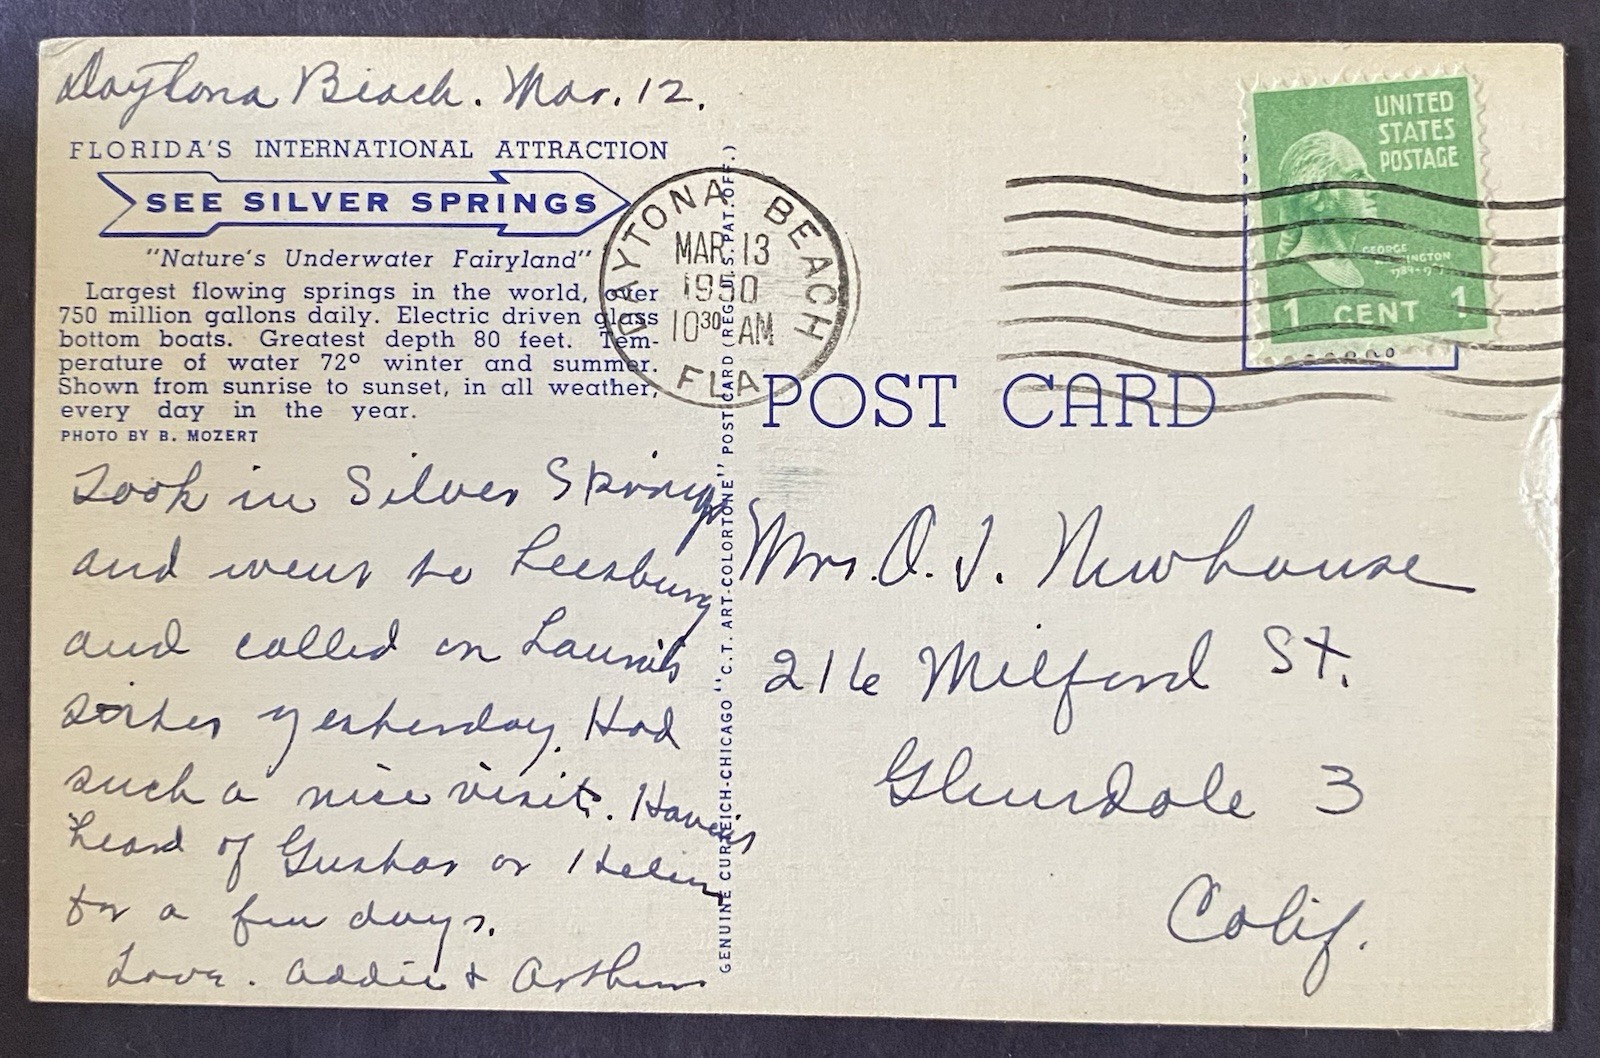 Daytona Beach. Mar. 12.
FLORIDA'S INTERNATIONAL ATTRACTION
SEE SILVER SPRINGS
"Nature's Underwater Fairyland"
Largest flowing springs in the world, over
750 million gallons daily. Electric driven glass
bottom boats. Greatest depth 80 feet. Tem-
perature of water 72° winter and summer.
Shown from sunrise to sunset, in all weather,
every day in the year.
PHOTO BY B. MOZERT
Took in Silver Springs
and went to Leesburg
and called on
sister yesterday. Had
such a nice visit. Haven't
heard of or Helen
for a few days.
Love. Addie & Arthur
GENUINE CURTEICH-CHICAGO "C.T. ART-COLORTONE" POST CARD (REG. U.S. PAT. OFF.)
DAYTONA BEACH
MAR 13
1950
10 30 AM
FLA
UNITED
STATES
POSTAGE
GEORGE
WASHINGTON
1789-1797
1 CENT 1
POST CARD
Mrs. O. J. Newhouse
216 Milford St.
Glendale 3
Calif.